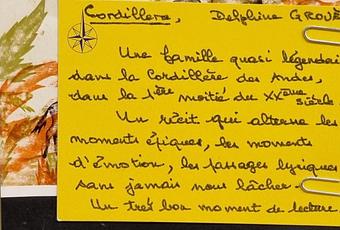 Cordillera, Delphine GROUÈ
Une famille quasi légendai
dans la Cordillère des Andes,
dans la 1ère moitié du XXème siècle
Un récit qui alterne les
moments épiques, les moments
d'émotion, les passages lyriques
sans jamais nous lâcher.
Un très bon moment de lecture